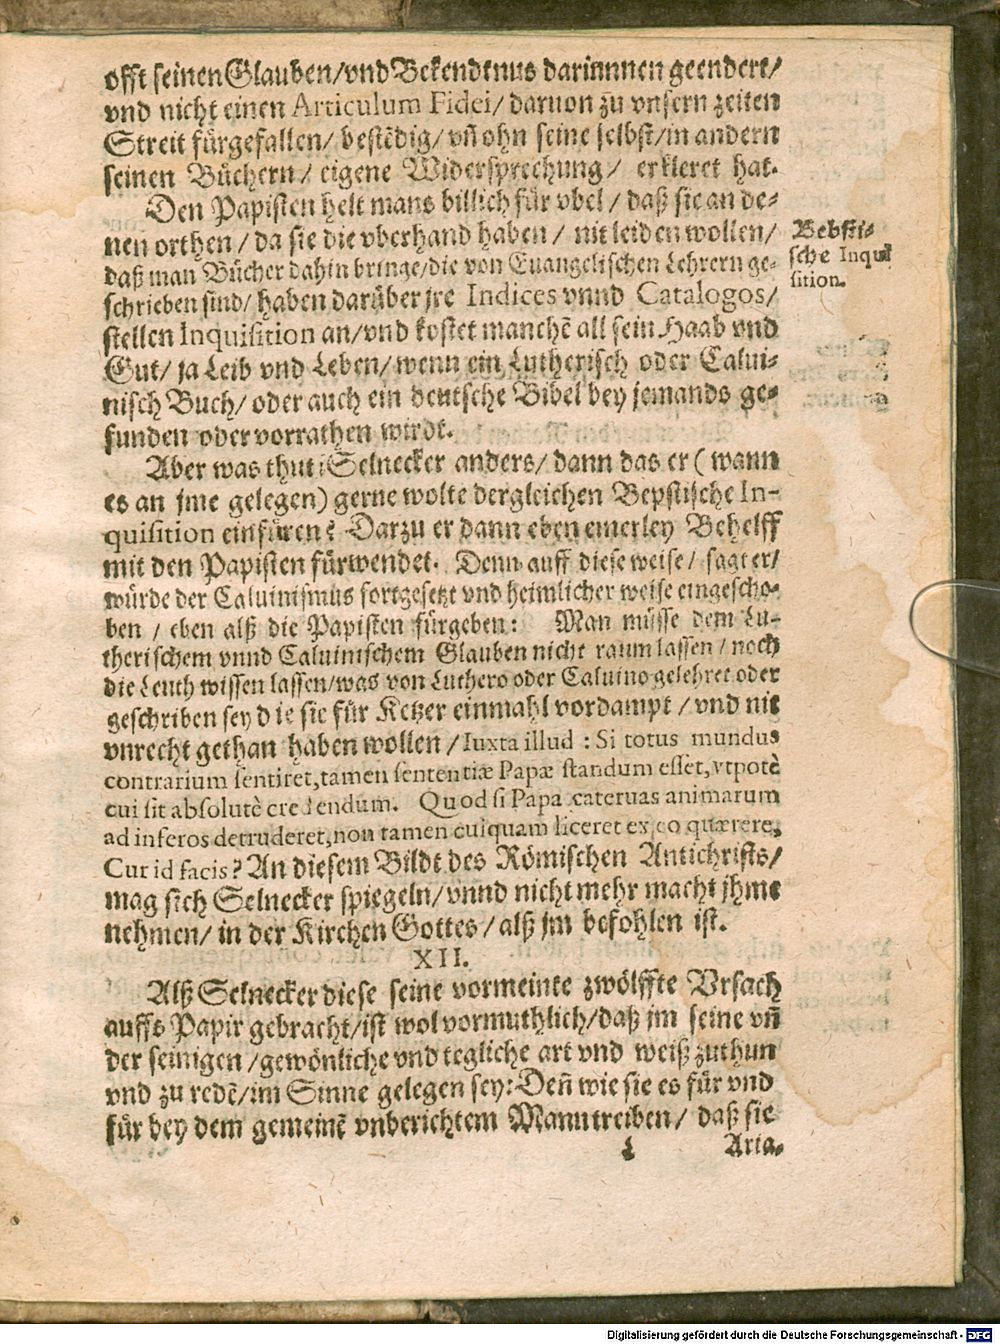 offt seinen Glauben/vnd Bekendtnus darinnnen geendert/
vnd nicht einen Articulum Fidei/ daruon zu vnsern zeiten
Streit fürgefallen/ bestēdig/ vn̄ ohn seine selbst/in andern
seinen Büchern/ eigene Widersprechung/ erkleret hat.
Den Papisten helt mans billich für vbel/ daß sie an de-
nen orthen/ da sie die vberhand haben/ nit leiden wollen/
daß man Bücher dahin bringe/die von Euangelischen Lehrern ge-
schrieben sind/ haben darüber jre Indices vnnd Catalogos/
stellen Inquisition an/vnd kostet manchē all sein Haab vnd
Gut/ ja Leib vnd Leben/ wenn ein Lutherisch oder Calui-
nisch Buch/ oder auch ein deutsche Bibel bey jemands ge-
funden oder vorrathen wirdt.
Bebsti-
sche Inqui
sition.
Aber was thut Selnecker anders/ dann das er (wann
es an jme gelegen) gerne wolte dergleichen Bepstische In-
quisition einfüren? Darzu er dann eben einerley Behelff
mit den Papisten fürwendet. Denn auff diese weise/ sagt er/
würde der Caluinismus fortgesetzt vnd heimlicher weise eingescho-
ben / eben alß die Papisten fürgeben: Man müsse dem Lu-
therischem vnnd Caluinischem Glauben nicht raum lassen / noch
die Leuth wissen lassen/was von Luthero oder Caluino gelehret oder
geschriben sey die sie für Ketzer einmahl vordampt / vnd nit
vnrecht gethan haben wollen / Iuxta illud : Si totus mundus
contrarium sentiret,tamen sententiæ Papæ standum esset,vtpotè
cui sit absolutè credendum. Quod si Papa cateruas animarum
ad inferos detruderet,non tamen cuiquam liceret ex eo quærere,
Cur id facis? An diesem Bildt des Römischen Antichrists/
mag sich Selnecker spiegeln/ vnnd nicht mehr macht jhme
nehmen/ in der Kirchen Gottes/ alß jm befohlen ist.
XII.
Alß Selnecker diese seine vormeinte zwölffte Vrsach
auffs Papir gebracht/ist wol vormuthlich/daß jm seine vn̄
der seinigen /gewönliche vnd tegliche art vnd weiß zuthun
vnd zu redē/im Sinne gelegen sey: Den̄ wie sie es für vnd
für bey dem gemeinē vnberichtem Mann treiben/ daß sie
L Aria-
Digitalisierung gefördert durch die Deutsche Forschungsgemeinschaft - DFG